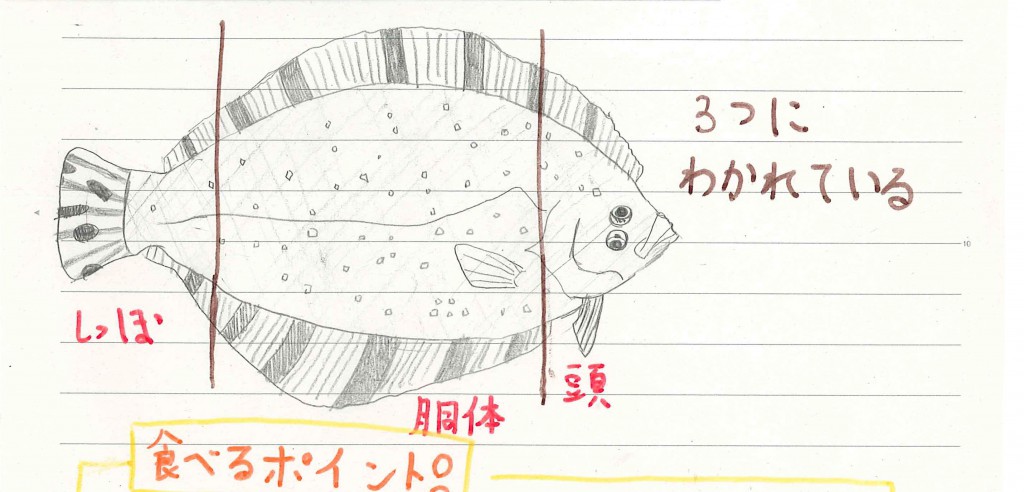 3つに
わかれている
10
しっぽ
頭
胴体
食べるポイント。